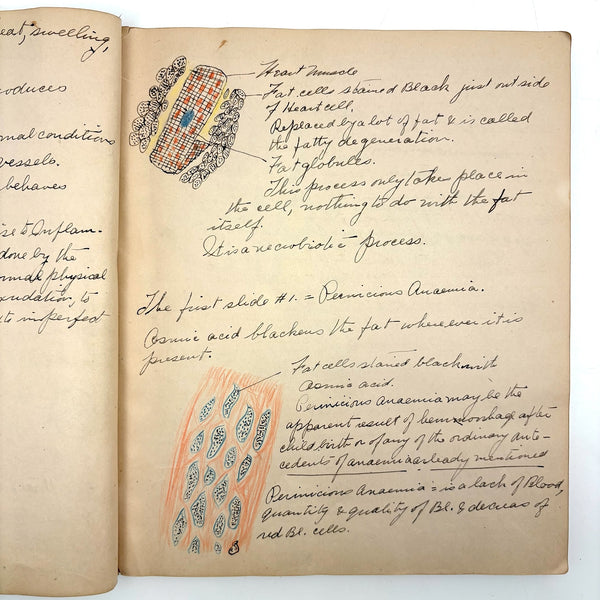 eat, swelling,
oduces
mal conditions
vessels.
behaves
se to Inflam-
done by the
ormal physical
oundation, to
to imperfect
Heart Muscle
Fat cells stained Black just out side
of Heart cell.
Replaced by a lot of fat & is called
the fatty degeneration.
Fat globules.
This process only takes place in
the cell, nothing to do with the fat
itself.
It is a necrobiotic process.
The first slide #1. = Pernicious Anaemia.
Osmic acid blackens the fat where ever it is
present.
Fat cells stained black with
Osmic acid.
Perinicious Anaemia may be the
apparent result of hemmorrhage after
child birth or of any of the ordinary ante-
cedents of anaemia already mentioned
Perinicious Anaemia = is a lack of Blood,
quantity & quality of Bl. & decreas of
red Bl. cells.